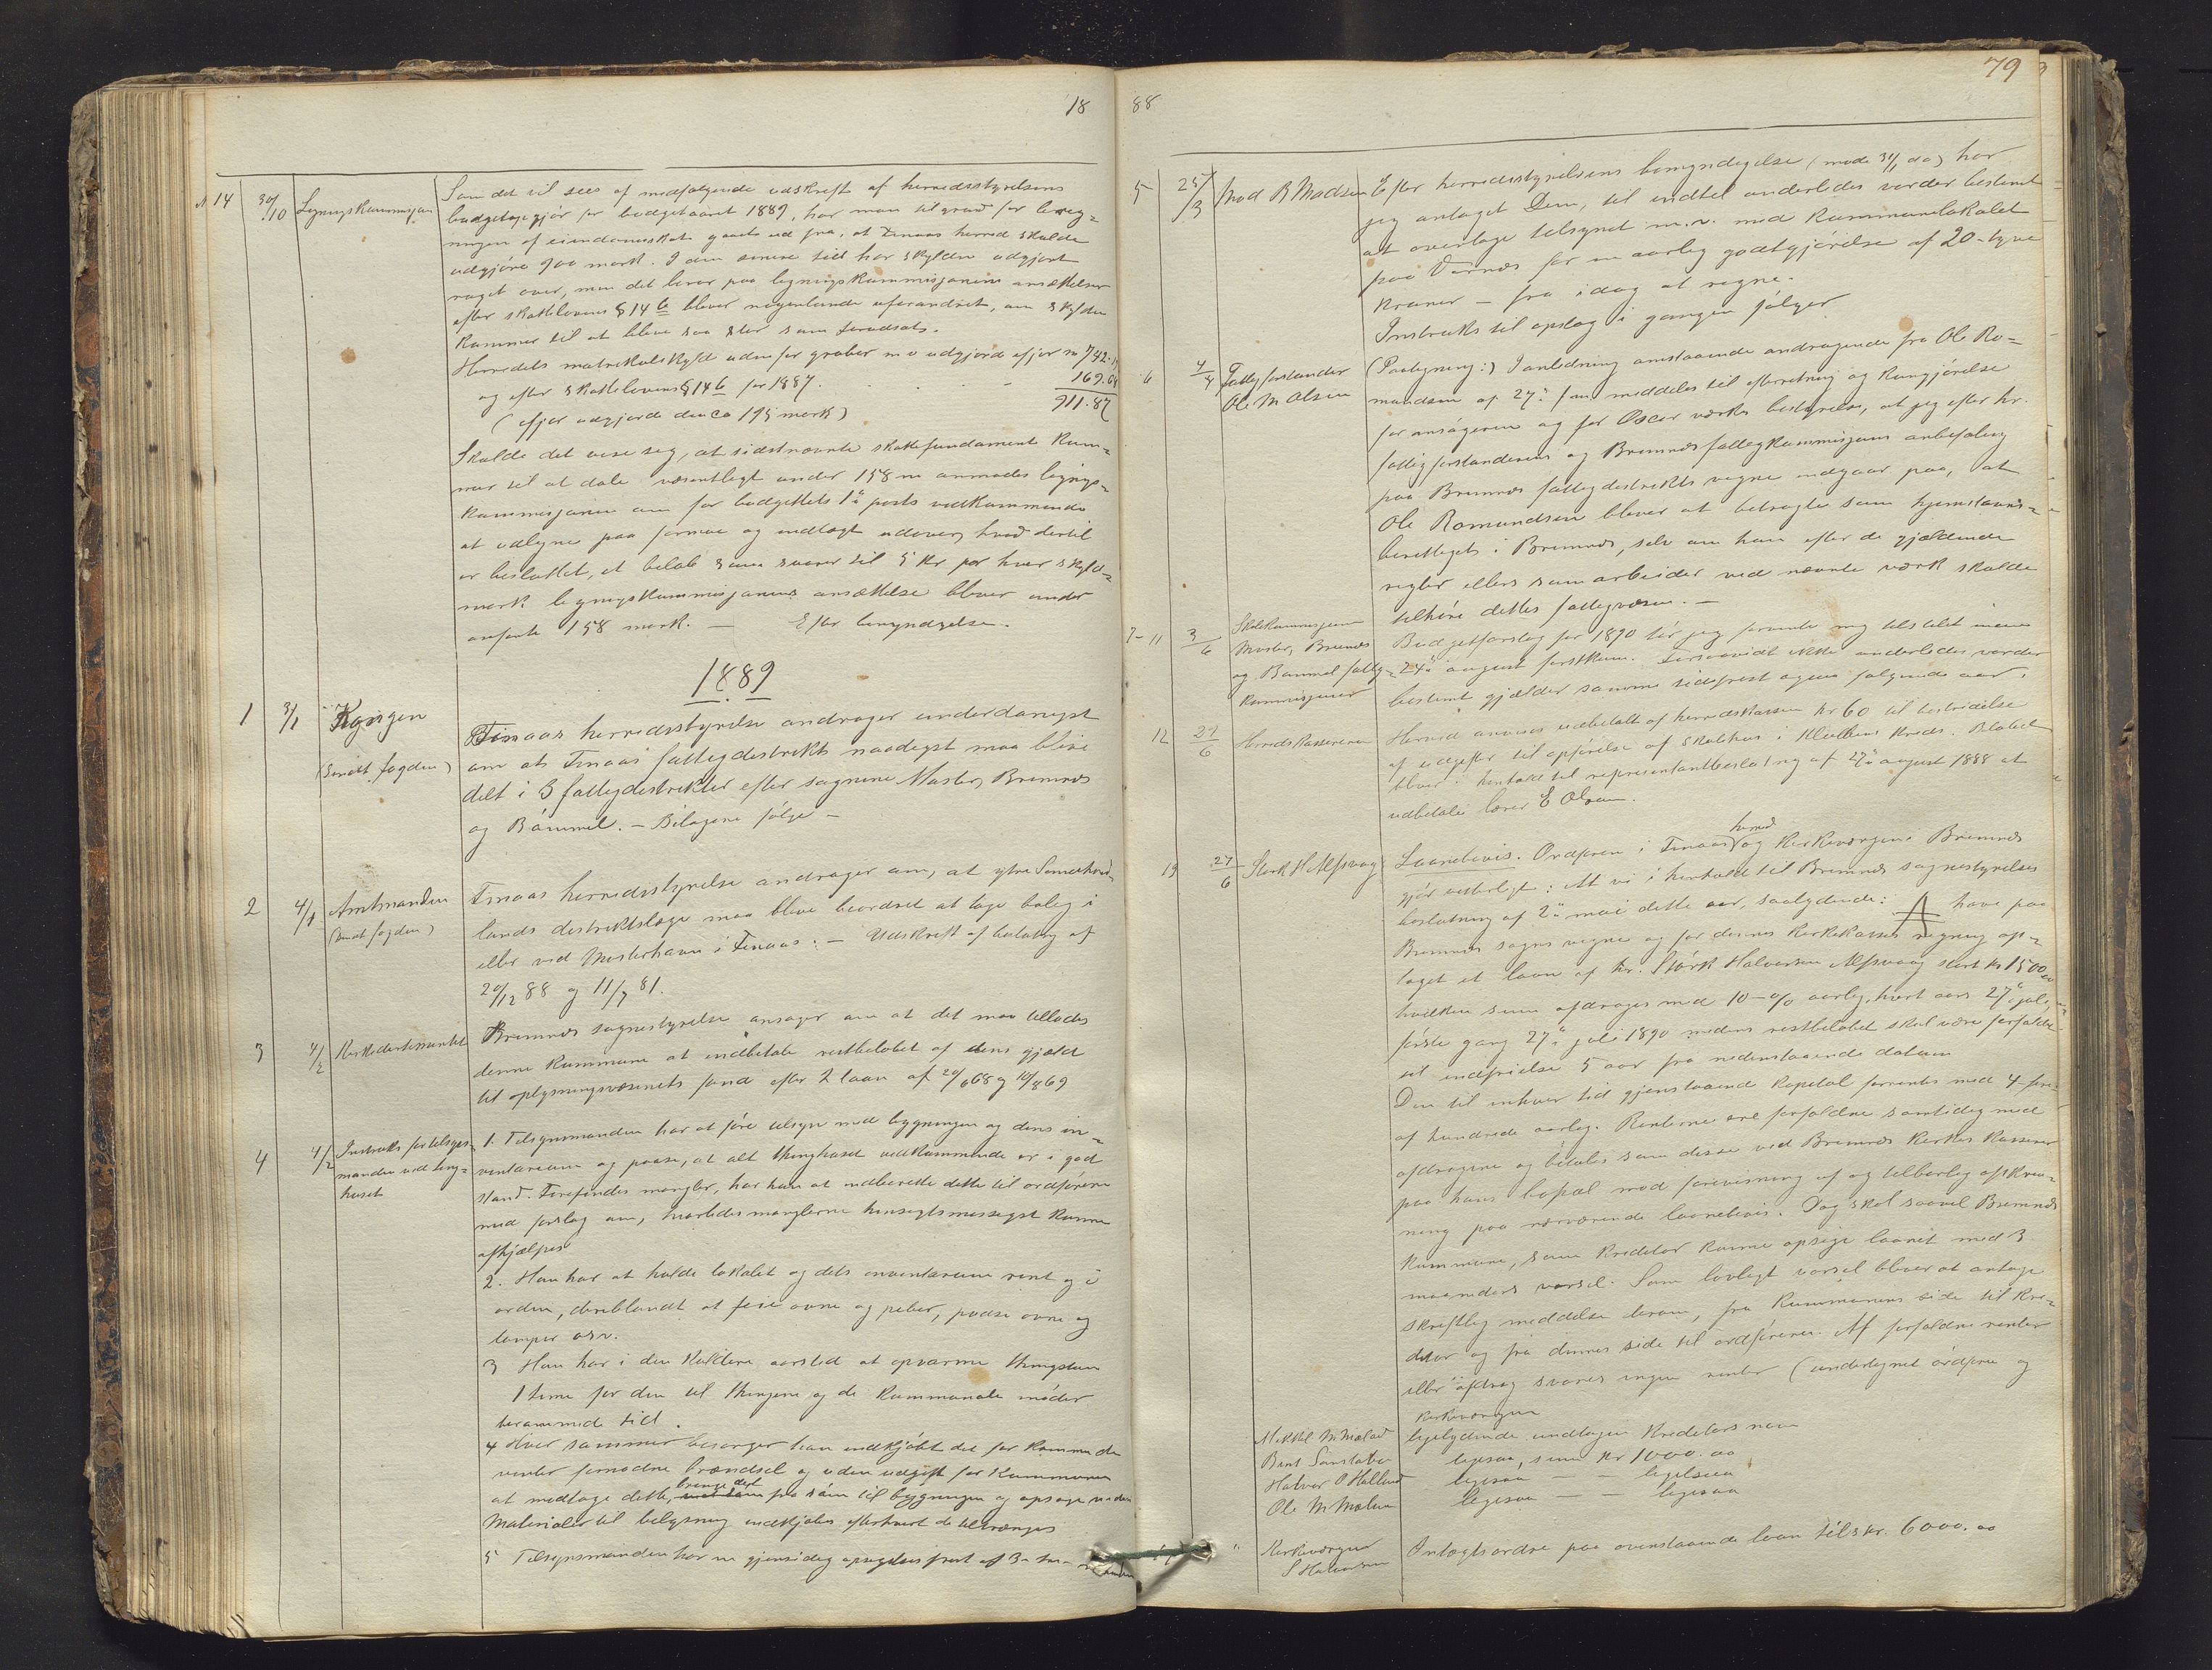 18
№ 14 30/10 Ligningskommisjonen Som det vil sees af medfølgende udskrift af herredsstyrelsens
budgetopgjør for budgetaaret 1889, har man til grund for bereg=
ningen af eiendomsskat gaaet ud fra, at Finaas herred skulde
udgjøre 900 mark. I den senere tid har skylden udgjort
noget over, men det beror paa ligningskommisjonens ansættelser
efter skattelovens § 14 b bliver nogenlunde uforandret, om skylden
kommer til at blive saa stor som forudsat.
Herredets matrikulskyld udenfor gruber m v udgjorde ifjor m 742.
og efter skattelovens § 14 b for 1887. 169.
(ifjor udgjorde den ca 175 mark) 911.87
Skulde det vise seg, at sidstnævnte skattefundament kom=
mer til at dale væsentligt under 158 m anmodes lignings=
kommisjonen om for budgettets 1ste posts vedkommende
at udligne paa formue og indtægt udover hvad dertil
er besluttet, et beløb som svarer til 5 kr for hver skyld=
mark ligningskommisjonens ansættelse bliver under
anførte 158 mark. — Efter bemyndigelse.
1889
1 3/1 Kongen Finaas herredsstyrelse andrager underdanigst
(sendt fogden) om at Finaas fattigdistrikt naadigst maa blive
delt i 3 fattigdistrikter efter sognene Moster, Bremnes
og Bømmel. — Bilagene følge —
2 4/1 Amtmanden Finaas herredsstyrelse andrager om, at ytre Søndhord=
(sendt fogden) lands distriktslæge maa blive beordret at tage bolig i
eller ved Mosterhavn i Finaas. — Udskrift af beslutning af
20/12 88 og 11/7 81.
3 4/2 Kirkedepartementet Bremnes sognestyrelse ansøger om at det maa tillades
denne kommune at indbetale restbeløbet af dens gjæld
til oplysningsvæsenets fond efter 2 laan af 20/6 68 og 10/8 69
4 4/2 Instruks for tilsyns= 1. Tilsynsmanden har at føre tilsyn med bygningen og dens in=
manden ved ting= ventarium og paase, at alt thinghuset vedkommende er i god
huset stand. Forefindes mangler, har han at indberette dette til ordføreren
med forslag om, hvorledes manglerne hensigtsmessigst kunne
afhjælpes
2. Han har at holde lokalet og dets inventarium rent og i
orden, deriblandt at feie ovne og peber, pudse ovne og
lamper osv.
3 Han har i den koldere aarstid at opvarme thingstuen
1 time før den til thingene og de kommunale møder
berammede tid.
4 Hver sommer besørger han indkjøbt det for kommende
vinter fornødne brændsel og uden udgift for kommunen
at modtage dette, bringe det fra søen til bygningen og opsage veden
Materialer til belysning indkjøbes efterhvert de tiltrænges
5 Tilsynsmanden har en gjensidig opsigelses frist af 3- tre maaneder
88
79
5 25/3 Mad R Madsen Efter herredsstyrelsens bemyndigelse (møde 30/11 do) har
jeg antaget Dem, til indtil anderledes vorder bestemt
at overtage tilsynet m. v. med kommunelokalet
paa Vernes for en aarlig godtgjørelse af 20-tyve
kroner — fra idag at regne.
Instruks til opslag i gangen følger
6 4/4 Fattigforstander (Paategning:) I anledning omstaaende andragende fra Ole Ro=
Ole M Olsen mundsen af 27de f.m. meddeles til efterretning og kungjørelse
for ansøgeren og for Oscar værks bestyrelse, at jeg efter hr.
fattigforstanderens og Bremnes fattigkommisjons anbefaling
paa Bremnes fattigdistrikts vegne indgaar paa, at
Ole Romundsen bliver at betragte som hjemstavns=
berettiget i Bremnes, selv om han efter de gjældende
regler ellers som arbeider ved nævnte værk skulde
tilhøre dettes fattigvæsen. —
7-11 3/6 Skolekommisjonen Budgetforslag for 1890 tør jeg forvente mig tilstilet innen
Moster, Bremnes 24de august førstkom. Forsaavidt ikke anderledes vorder
og Bømmel fattig= bestemt gjælder samme tidsfrist ogsaa følgende aar.
kommisjoner
12 27/6 Herredskassereren Herved anvises udbetalt af herredskassen kr 60 til bestridelse
af udgifter til opførelse af skolehus i kreds. Beløbet
bliver i henhold til representantbeslutning af 27de august 1888 at
udbetale lærer E Olsen.
13 27/6 Størk H Alfsvaag Laanebevis. Ordføreren i Finaas herred og kirkeværgen i Bremnes
gjør vitterligt: At vi i henhold til Bremnes sognestyrelses
beslutning af 2den mai dette aar, saalydende: A have paa
Bremnes sogns vegne og for dennes kirkekasses regning op=
taget et laan af hr. Størk Halvorsen Alfsvaag stort kr 1500,00
hvilken sum afdrages med 10- o/o aarlig, hvert aars 27de juli,
første gang 27de juli 1890 medens restbeløbet skal være forfalden
til indfrielse 5 aar fra nedenstaaende datum
Den til enhver tid gjenstaaende kapital forrentes med 4-fire
af hundrede aarlig. Renterne ere forfaldne samtidig med
afdragene og betales som disse ved Bremnes kirkes kasserer
paa hans bopæl mod forevisning af og tilbørlig afskriv=
ning paa nærværende laanebevis. Dog skal saavel Bremnes
kommune, som kreditor kunne opsige laanet med 3
maaneders varsel. Som lovligt varsel bliver at antage
skriftlig meddelse derom, fra kommunens side til kre=
ditor og fra dennes side til ordføreren. Af forfaldne renter
eller afdrag svares ingen renter (undertegnet ordfører og
kirkeværgen
Mikkel M Mælad ligelydende undtagen kreditors navn
Bent Sønstabø ligesaa, sum kr 1000.00
Halvor O Holland ligesaa — — ligelsaa
Ole M Mælum ligesaa — — ligesaa
" Kirkeværgen Indtægtsordre paa ovenstaaende laan tils kr. 6000.00
S Halvorsen